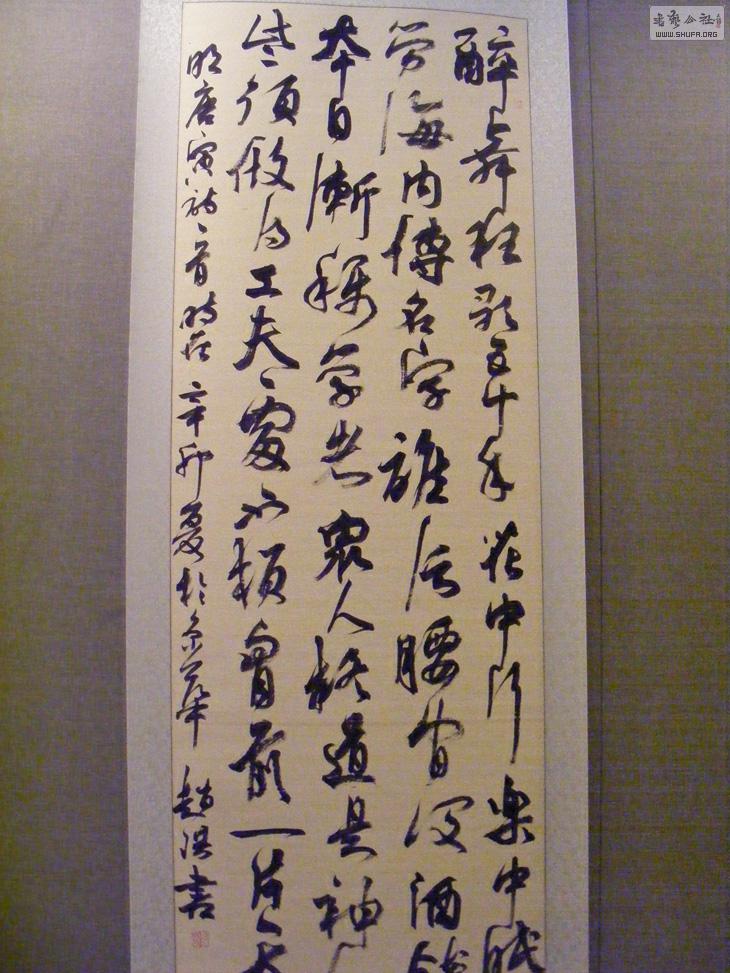 醉舞狂歌五十年花中行樂中眠
劳海内傳名字誰信腰間没酒錢
本日漸稱學者眾人終道是神仙
些須做得工夫處不損胷前一片天
明唐寅詩一首時在辛卯夏於京華 趙洪書
書藝公社
WWW.SHUFA.ORG